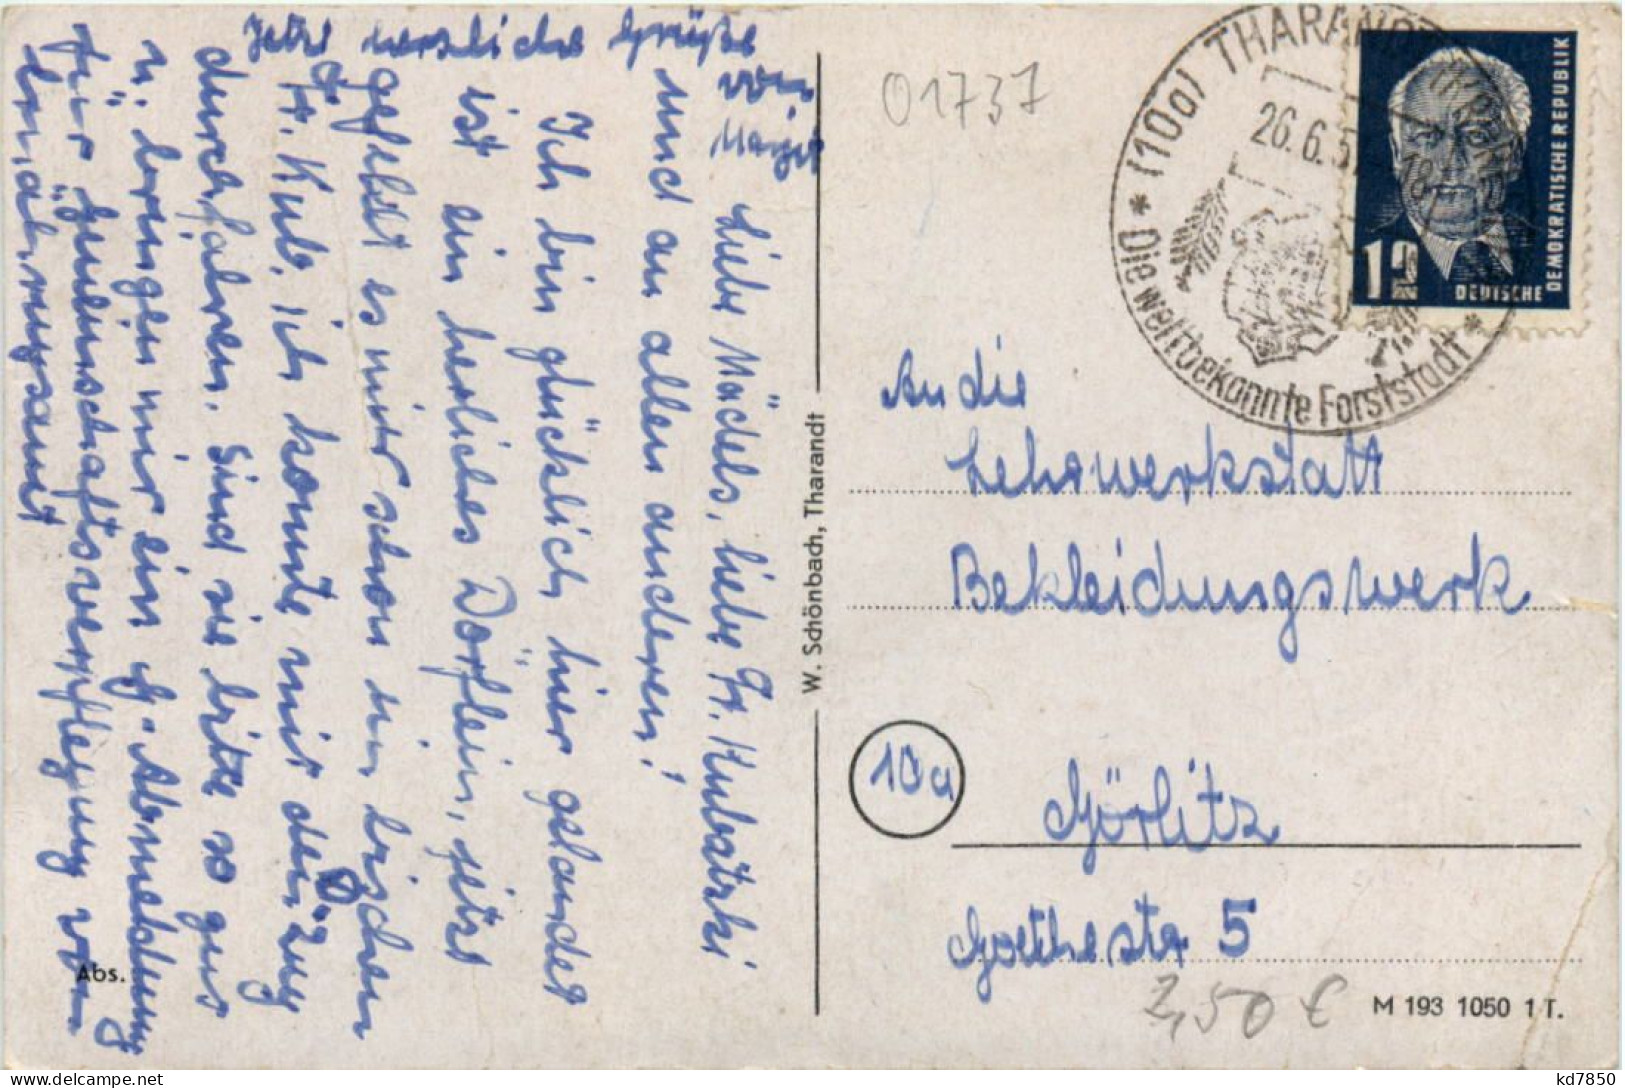 Liebe Mädels, liebe Fr. Kubatzki
und an allen anderen!
Ich bin glücklich hier gelandet
ist ein herliches Dörflein, jetzt
gefehlt es mir schon ein bischen
Fr. Kub. ich konnte mit dem D Zug
durchfahren. Sind sie bitte so gut
u. bringen mir ein g. Abmeldung
für Gemeinschaftsverpflegung vom
Ernährungsamt
Jetzt herzliche Grüße
von
Margot
Abs.
W. Schönbach, Tharandt
01737
(10a) THARANDT
26.6.5
18
* Die weltbekannte Forststadt *
12
DEUTSCHE
DEMOKRATISCHE REPUBLIK
An die
Lehrwerkstatt
Bekleidungswerk
10a
Görlitz
Goethestr 5
2,50 €
M 193 1050 1 T.
kd7850